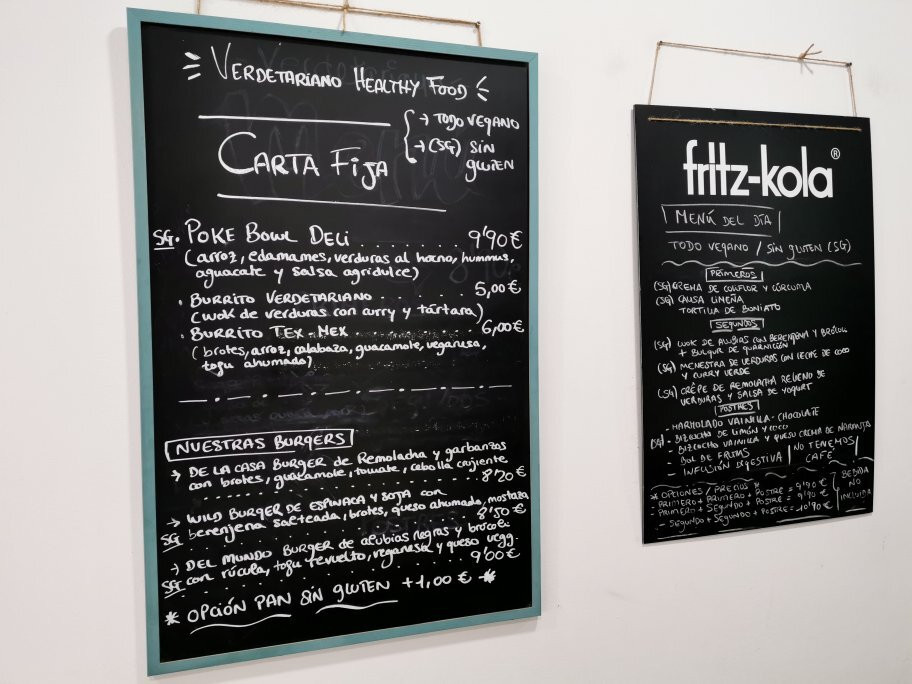 VERDETARIANO HEALTHY FOOD
CARTA FIJA
→ TODO VEGANO
→ (SG) SIN
GLUTEN
SG. POKE BOWL DELI . . . . . . . . 9'90€
(arroz, edamames, verduras al horno, hummus,
aguacate y salsa agridulce)
· BURRITO VERDETARIANO . . . . . . . . 5,00€
(wok de verduras con curry y tártara)
· BURRITO TEX-MEX . . . . . . . . 6,00€
(brotes, arroz, calabaza, guacamole, veganesa,
tofu ahumado)
NUESTRAS BURGERS
→ DE LA CASA BURGER de Remolacha y garbanzos
con brotes, guacamole, tomate, cebolla crujiente
. . . . . . . . 8'20
→ WILD BURGER DE ESPINACA Y SOJA con
SG berenjena salteada, brotes, queso ahumado, mostaza
. . . . . . . . 8'50€
→ DEL MUNDO BURGER de alubias negras y brócoli
SG con rúcula, tofu revuelto, veganesa y queso vegg.
. . . . . . . . 9'00€
* OPCIÓN PAN SIN GLUTEN +1,00€ *
fritz-kola®
MENÚ DEL DÍA
TODO VEGANO / SIN GLUTEN (SG)
PRIMEROS
(SG) CREMA DE COLIFLOR Y CÚRCUMA
(SG) CAUSA LIMEÑA
TORTILLA DE BONIATO
SEGUNDOS
(SG) WOK DE ALUBIAS CON BERENJENA Y BRÓCOLI
+ BULGUR DE GUARNICIÓN
(SG) MENESTRA DE VERDURAS CON LECHE DE COCO
Y CURRY VERDE
(SG) CRÊPE DE REMOLACHA RELLENO DE
VERDURAS Y SALSA DE YOGURT
POSTRES
- MARMOLADO VAINILLA - CHOCOLATE
(SG) - BIZCOCHO DE LIMÓN Y COCO
- BIZCOCHO VAINILLA Y QUESO CREMA DE NARANJA
- BOL DE FRUTAS
- INFUSIÓN DIGESTIVA
NO TENEMOS
CAFÉ
* OPCIONES / PRECIOS *
- PRIMERO + PRIMERO + POSTRE = 9'90€
- PRIMERO + SEGUNDO + POSTRE = 9'90€
- SEGUNDO + SEGUNDO + POSTRE = 10'90€
BEBIDA
NO
INCLUIDA